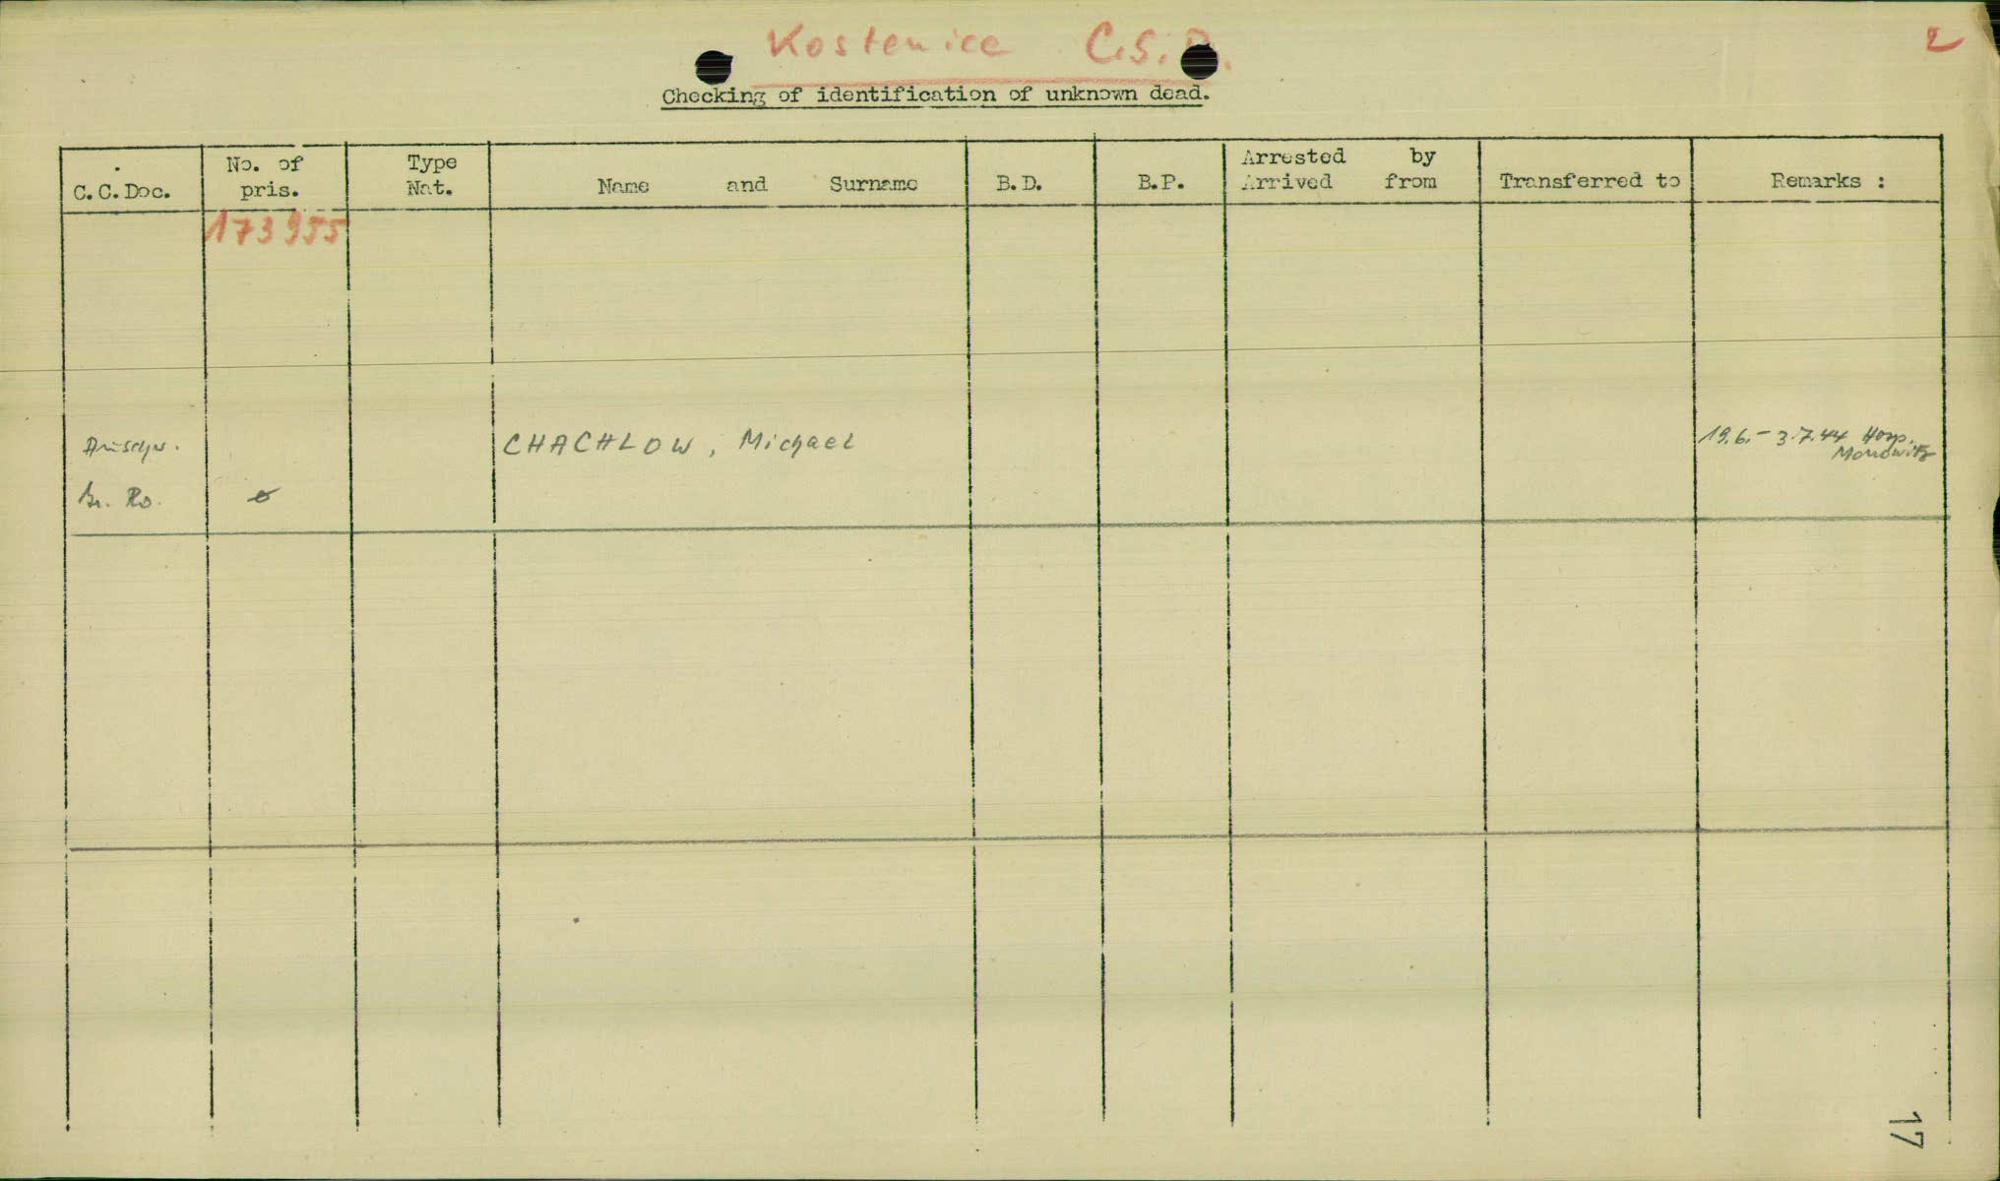 Kostenice C.S.R.
2
Checking of identification of unknown dead.
C.C.Doc.
No. of
pris.
Type
Nat.
Name and Surname
B.D.
B.P.
Arrested by
Arrived from
Transferred to
Remarks :
173955
Auschw.
CHACHLOW, Michael
19.6.-3.7.44 Hosp.
Monowitz
Ro.
17